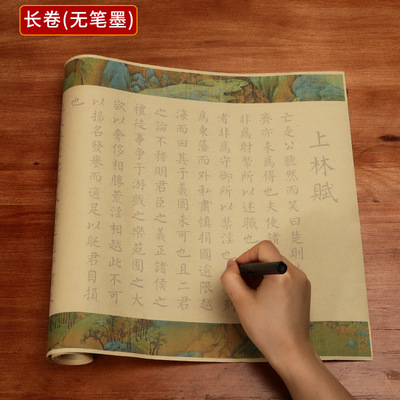 长卷(无笔墨)
上林賦
亡是公聽然而笑曰楚則
齊亦未為得也夫使諸
非為財幣所以述職也
者非為守御所以禁淫也
為東藩而外私肅慎捐國逾限越
海而田其于義固未可也且二君
之論不務明君臣之義正諸侯之
禮徒事爭于游戲之樂苑囿之大
欲以奢侈相勝荒淫相越此不可
以揚名發譽而適足以貶君自損
也